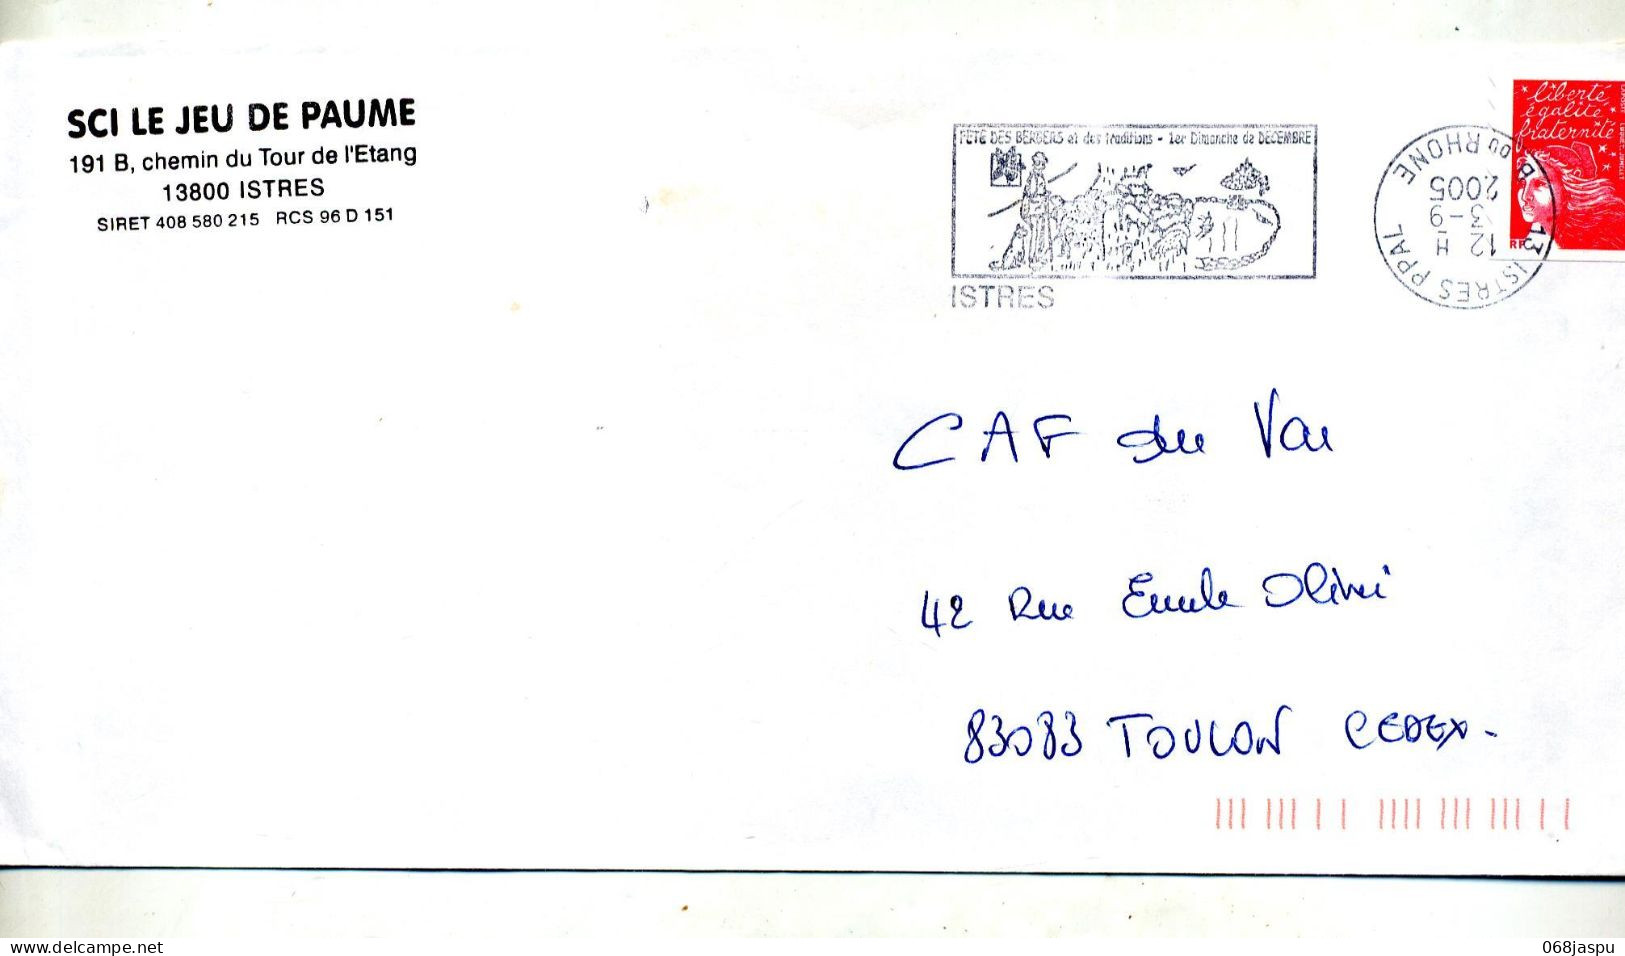 SCI LE JEU DE PAUME
191 B, chemin du Tour de l'Etang
13800 ISTRES
SIRET 408 580 215 RCS 96 D 151
FETE DES BERGERS et des traditions - 1er Dimanche de DECEMBRE
ISTRES
13 ISTRES PPAL
B. DU RHONE
12 H
3-9
2005
liberté
égalité
fraternité
RF
CAF du Var
42 Rue Emile Olivi
83083 TOULON CEDEX.
www.delcampe.net
068jaspu